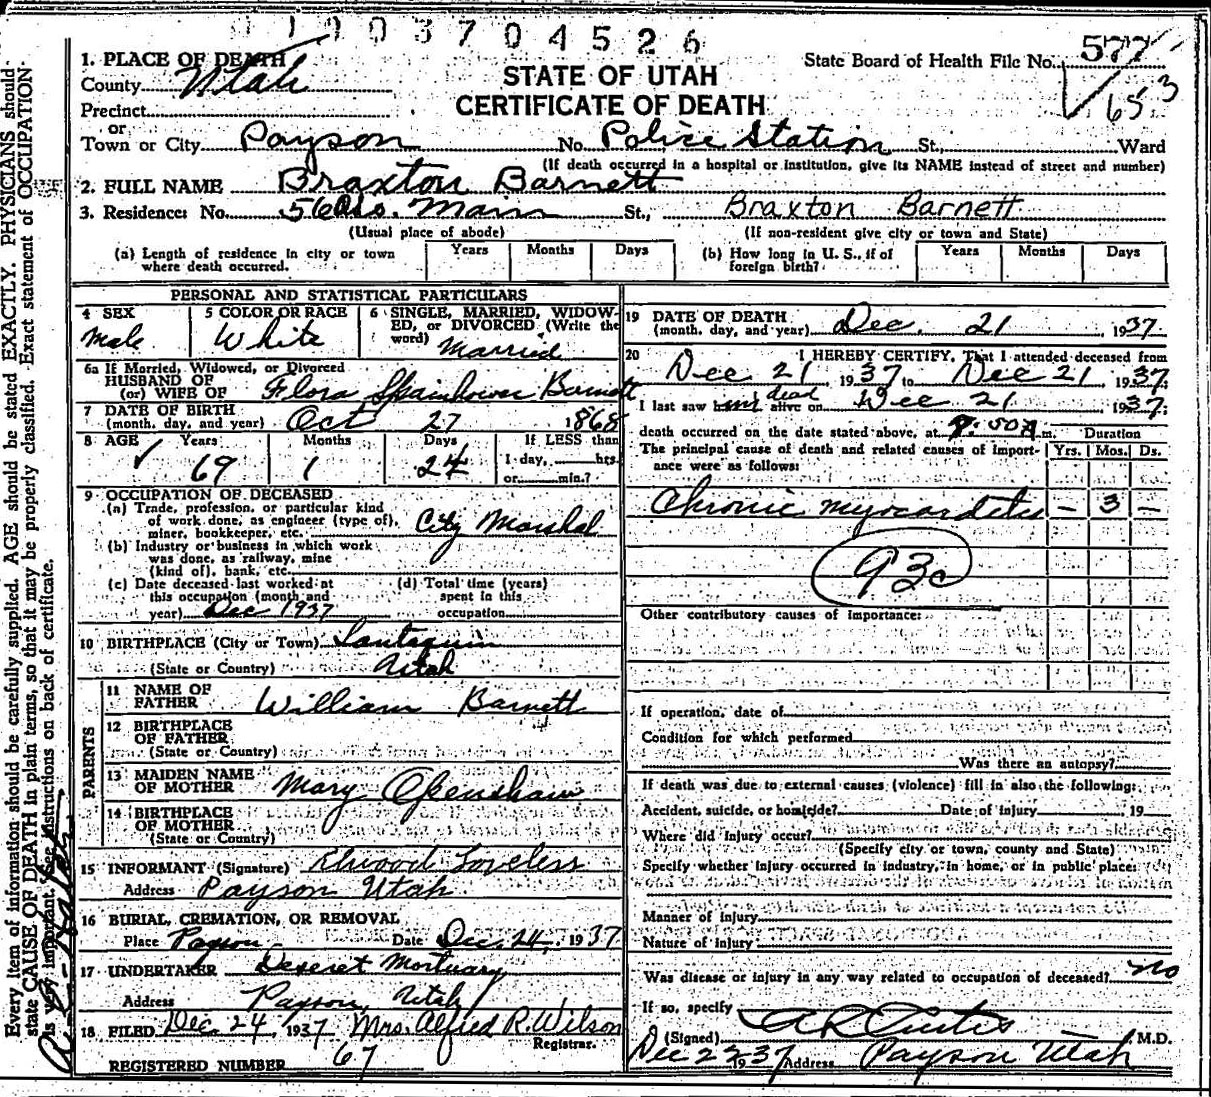 0 1 9 0 3 7 0 4 5 2 6
STATE OF UTAH
CERTIFICATE OF DEATH
State Board of Health File No. 577
653
1. PLACE OF DEATH
County Utah
Precinct
or
Town or City Payson No. Police Station St., Ward
(If death occurred in a hospital or institution, give its NAME instead of street and number)
2. FULL NAME Braxton Barnett
3. Residence: No. 560 So. Main St., Braxton Barnett
(Usual place of abode) (If non-resident give city or town and State)
(a) Length of residence in city or town where death occurred. Years Months Days
(b) How long in U. S., if of foreign birth? Years Months Days
PERSONAL AND STATISTICAL PARTICULARS
4 SEX Male
5 COLOR OR RACE White
6 SINGLE, MARRIED, WIDOWED, or DIVORCED (Write the word) Married
6a If Married, Widowed, or Divorced
HUSBAND OF
(or) WIFE OF Flora Spainhower Barnett
7 DATE OF BIRTH
(month, day, and year) Oct 27 1868
8 AGE Years Months Days If LESS than
69 1 24 1 day, hrs.
or min.?
9 OCCUPATION OF DECEASED
(a) Trade, profession, or particular kind
of work done, as engineer (type of),
miner, bookkeeper, etc. City Marshal
(b) Industry or business in which work
was done, as railway, mine
(kind of), bank, etc.
(c) Date deceased last worked at
this occupation (month and
year) Dec 1937
(d) Total time (years)
spent in this
occupation
10 BIRTHPLACE (City or Town) Santaquin
(State or Country) Utah
PARENTS
11 NAME OF
FATHER William Barnett
12 BIRTHPLACE
OF FATHER
(State or Country)
13 MAIDEN NAME
OF MOTHER Mary Openshaw
14 BIRTHPLACE
OF MOTHER
(State or Country)
15 INFORMANT (Signature) Elwood Loveless
Address Payson Utah
16 BURIAL, CREMATION, OR REMOVAL
Place Payson Date Dec. 24, 1937
17 UNDERTAKER Deseret Mortuary
Address Payson, Utah
18 FILED Dec. 24 1937 Mrs. Alfred R. Wilson
Registrar.
REGISTERED NUMBER 67
19 DATE OF DEATH
(month, day, and year) Dec. 21, 1937
20 I HEREBY CERTIFY, That I attended deceased from
Dec 21 1937 to Dec 21 1937;
I last saw him dead alive on Dec 21 1937;
death occurred on the date stated above, at 9:50 A m. Duration
The principal cause of death and related causes of importance were as follows: Yrs. Mos. Ds.
Chronic myocarditis – 3 –
93c
Other contributory causes of importance:
If operation, date of
Condition for which performed
Was there an autopsy?
If death was due to external causes (violence) fill in also the following:
Accident, suicide, or homicide? Date of injury 19
Where did injury occur?
(Specify city or town, county and State)
Specify whether injury occurred in industry, in home, or in public place:
Manner of injury
Nature of injury
Was disease or injury in any way related to occupation of deceased? no
If so, specify
(Signed) A R Curtis M.D.
Dec 22 1937 Address Payson Utah
Every item of information should be carefully supplied. AGE should be stated EXACTLY. PHYSICIANS should
state CAUSE OF DEATH in plain terms, so that it may be properly classified. Exact statement of OCCUPATION
is very important. See instructions on back of certificate.